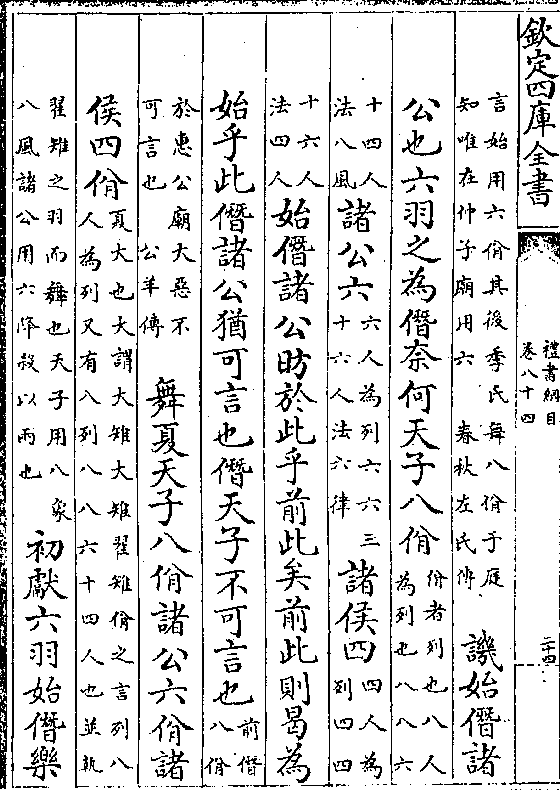 欽定四庫全書
禮書綱目
卷八十四
二十四
言始用六佾其後季氏舞八佾于庭
知唯在仲子廟用六 春秋左氏傳
譏始僭諸
公也六羽之為僭奈何天子八佾
佾者列也八人
為列也八八六
十四人
法八風
諸公六
六人為列六六三
十六人法六律
諸侯四
四人為
列四四
十六人
法四人
始僭諸公昉於此乎前此矣前此則曷為
始乎此僭諸公猶可言也僭天子不可言也
前僭
八佾
於惠公廟大惡不
可言也 公羊傳
舞夏天子八佾諸公六佾諸
侯四佾
夏大也大謂大雉大雉翟雉佾之言列八
人為列又有八列八八六十四人也並執
翟雉之羽而舞也天子用八象
八風諸公用六降殺以兩也
初獻六羽始僭樂